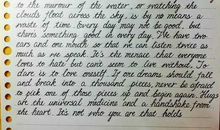 to the murmur of the water, or watching the
clouds float across the sky, is by no means a
waste of time. Every day may not be good, but
there's something good in every day. We have two
ears and one mouth so that we can listen twice as
much as we speak. It's the music that everyone
loves to hate but can't seem to live without. To
dare is to lose oneself. If one dreams should fall
and break into a thousand pieces, never be afraid
to pick one of those pieces up and begin again. Hugs
are the universal medicine and a handshake from
the heart. It's not who you are that holds